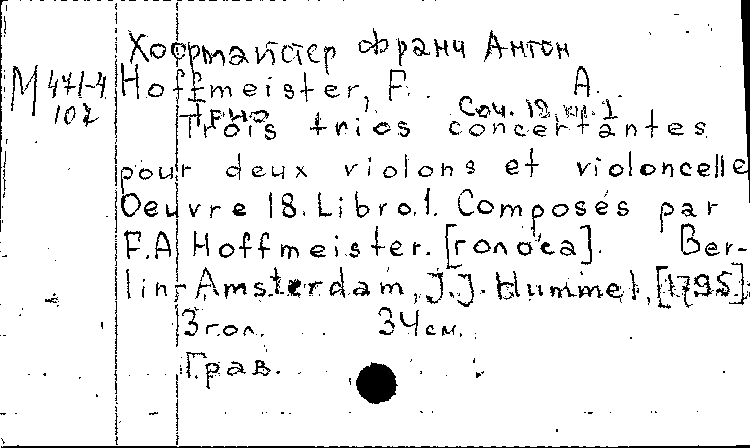 Хофмайстер Франц Антон
М 471-4 Hoffmeister, F. A.
107 Трио Соч. 18, кн. 1
Trois trios concertantes
pour deux violons et violoncelle
Oeuvre 18. Libro.1. Composés par
F.A Hoffmeister. [голоса]. Ber-
lin-Amsterdam, J.J. Hummel, [1795].
3 гол. 34 см.
Грав.